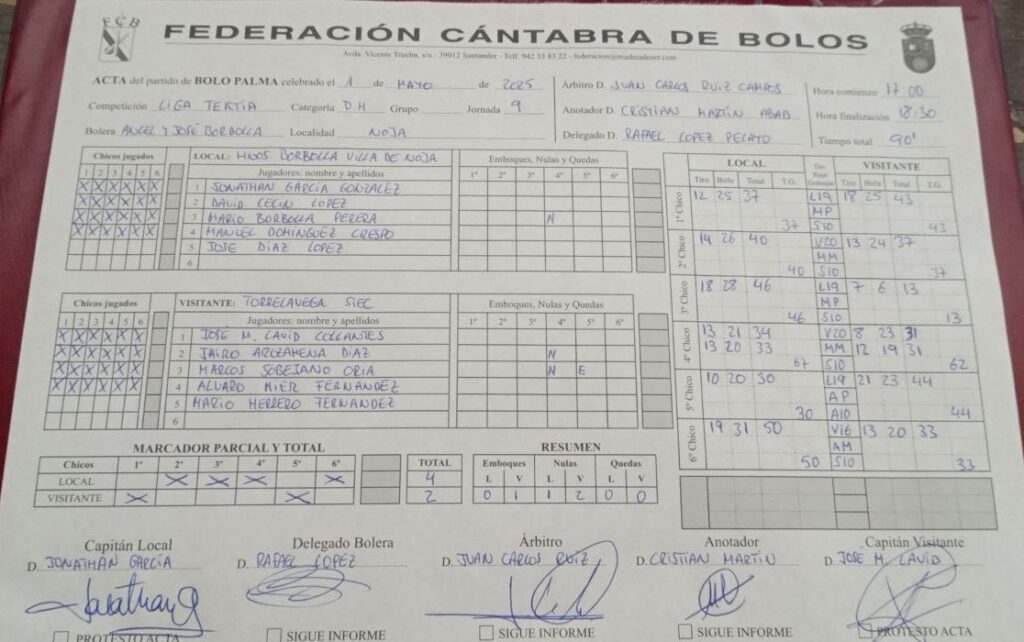 FCB
FEDERACIÓN CÁNTABRA DE BOLOS
Avda. Vicente Trueba, s/n - 39012 Santander - Telf. 942 33 83 22 - federacion@maderadeser.com
ACTA del partido de BOLO PALMA celebrado el 1 de MAYO de 2025
Competición LIGA TERTIA Categoría DH Grupo Jornada 9
Bolera ANGEL Y JOSÉ BORBOLLA Localidad NOJA
Árbitro D. JUAN CARLOS RUIZ CAMPOS
Anotador D. CRISTIAN MARTÍN ABAD
Delegado D. RAFAEL LOPEZ PELAYO
Hora comienzo 17 00
Hora finalización 18:30
Tiempo total 90'
Chicos jugados LOCAL: HNOS BORBOLLA VILLA DE NOJA Emboques, Nulas y Quedas
1 2 3 4 5 6 Jugadores: nombre y apellidos 1º 2º 3º 4º 5º 6º
X X X X X X 1 JONATHAN GARCÍA GONZALEZ
X X X X X X 2 DAVID CECIN LOPEZ
X X X X X X 3 MARIO BORBOLLA PERERA N
X X X X X X 4 MANUEL DOMINGUEZ CRESPO
5 JOSE DIAZ LOPEZ
6
Chicos jugados VISITANTE: TORRELAVEGA SIEC Emboques, Nulas y Quedas
1 2 3 4 5 6 Jugadores: nombre y apellidos 1º 2º 3º 4º 5º 6º
X X X X X X 1 JOSE M. LAVID COLLANTES
X X X X X X 2 JAIRO AROZAMENA DIAZ N
X X X X X X 3 MARCOS SOBEJANO ORIA N E
X X X X X X 4 ALVARO MIER FERNANDEZ
5 MARIO HERRERO FERNANDEZ
6
LOCAL Tiro Raya Emboque VISITANTE
Tiro Birle Total T.G. Tiro Birle Total T.G.
1º Chico 12 25 37 L19 18 25 43
MP
37 S10 43
2º Chico 14 26 40 V20 13 24 37
MM
40 S10 37
3º Chico 18 28 46 L19 7 6 13
MP
46 S10 13
4º Chico 13 21 34 V20 8 23 31
13 20 33 MM 12 19 31
67 S10 62
5º Chico 10 20 30 L19 21 23 44
AP
30 A10 44
6º Chico 19 31 50 V16 13 20 33
AM
50 S10 33
MARCADOR PARCIAL Y TOTAL
Chicos 1º 2º 3º 4º 5º 6º TOTAL
LOCAL X X X X 4
VISITANTE X X 2
RESUMEN
Emboques Nulas Quedas
L V L V L V
0 1 1 2 0 0
Capitán Local Delegado Bolera Árbitro Anotador Capitán Visitante
D. JONATHAN GARCÍA D. RAFAEL LOPEZ D. JUAN CARLOS RUIZ D. CRISTIAN MARTÍN D. JOSE M. LAVID
Jonathan G
PROTESTO ACTA SIGUE INFORME SIGUE INFORME SIGUE INFORME PROTESTO ACTA